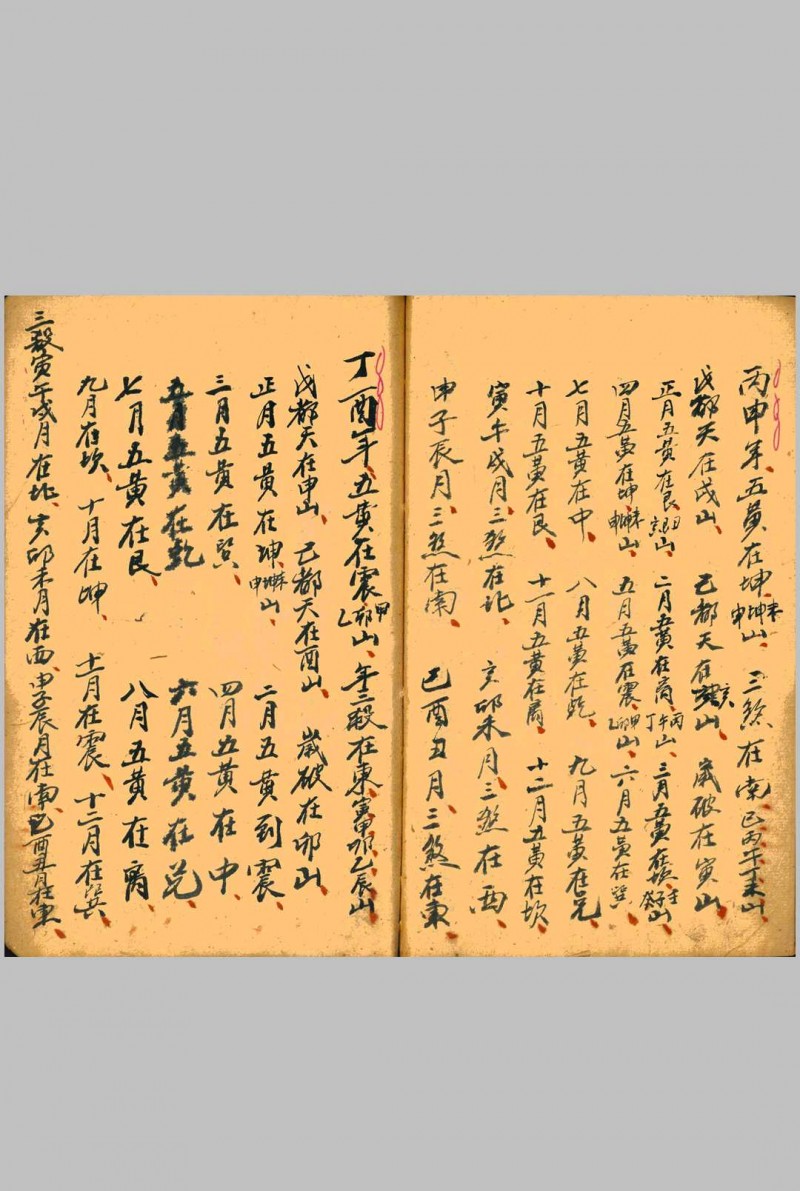 丙申年、五黄在坤、未坤申山、三煞在南、巳丙午丁未山、
戊都天在戌山、己都天在亥山、歲破在寅山、
正月五黄在艮、丑艮寅山、二月五黄在离、丙午丁山、三月五黄在坎、壬子癸山、
四月五黄在坤、未坤申山、五月五黄在震、甲卯乙山、六月五黄在巽、
七月五黄在中、八月五黄在乾、九月五黄在兑、
十月五黄在艮、十一月五黄在离、十二月五黄在坎、
寅午戌月、三煞在北、亥卯未月三煞在西、
申子辰月、三煞在南、巳酉丑月、三煞在東、
丁酉年、五黄在震、甲卯乙山、年三殺在東、寅甲卯乙辰山
戊都天在申山、己都天在酉山、歲破在卯山
正月五黄在坤、未坤申山、二月五黄到震
三月五黄在巽、四月五黄在中
五月五黄在乾、六月五黄在兑
七月五黄在艮、八月五黄在离
九月在坎、十月在坤、十一月在震、十二月在巽、
三殺寅午戌月在北、亥卯未月在西、申子辰月在南、巳酉丑月在東、